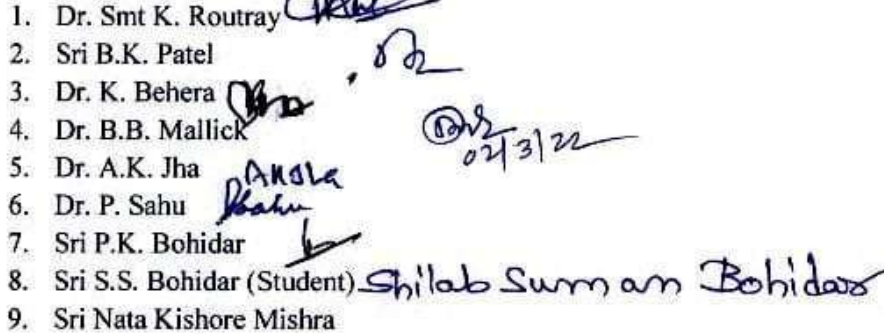 1. Dr. Smt K. Routray
2. Sri B.K. Patel
3. Dr. K. Behera
4. Dr. B.B. Mallick
02/3/22
5. Dr. A.K. Jha
6. Dr. P. Sahu Sahu
7. Sri P.K. Bohidar
8. Sri S.S. Bohidar (Student) Shilab Suman Bohidar
9. Sri Nata Kishore Mishra